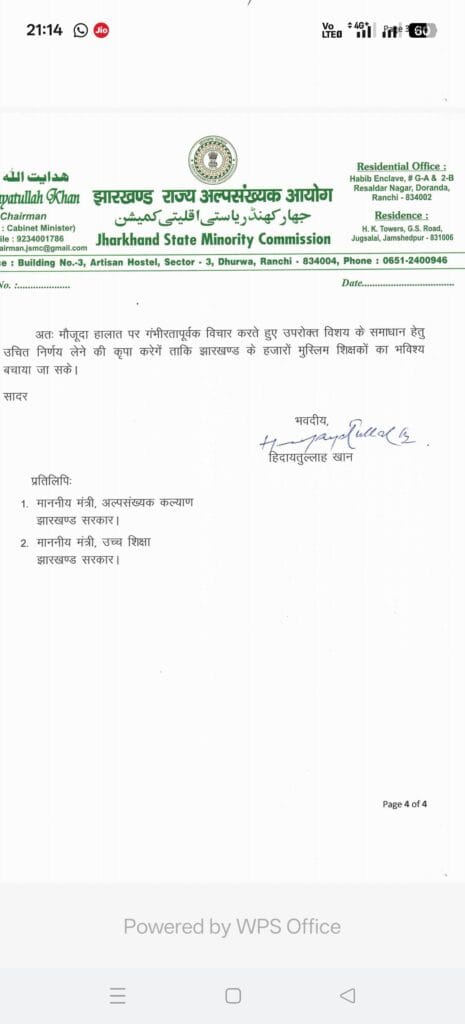 21:14
Vo
LTE
4G+
60
هدایت اللہ
yatullah Khan
Chairman
: Cabinet Minister)
ile : 9234001786
airman.jsmc@gmail.com
झारखण्ड राज्य अल्पसंख्यक आयोग
جھارکھنڈ ریاستی اقلیتی کمیشن
Jharkhand State Minority Commission
Residential Office :
Habib Enclave, # G-A & 2-B
Resaldar Nagar, Doranda,
Ranchi - 834002
Residence :
H. K. Towers, G.S. Road,
Jugsalai, Jamshedpur - 831006
e : Building No.-3, Artisan Hostel, Sector - 3, Dhurwa, Ranchi - 834004, Phone : 0651-2400946
No. :....................
Date.................................
अतः मौजूदा हालात पर गंभीरतापूर्वक विचार करते हुए उपरोक्त विशय के समाधान हेतु
उचित निर्णय लेने की कृपा करेगें ताकि झारखण्ड के हजारों मुस्लिम शिक्षकों का भविश्य
बचाया जा सके।
सादर
भवदीय,
हिदायतुल्लाह खान
प्रतिलिपिः
1. माननीय मंत्री, अल्पसंख्यक कल्याण
झारखण्ड सरकार।
2. माननीय मंत्री, उच्च शिक्षा
झारखण्ड सरकार।
Page 4 of 4
Powered by WPS Office